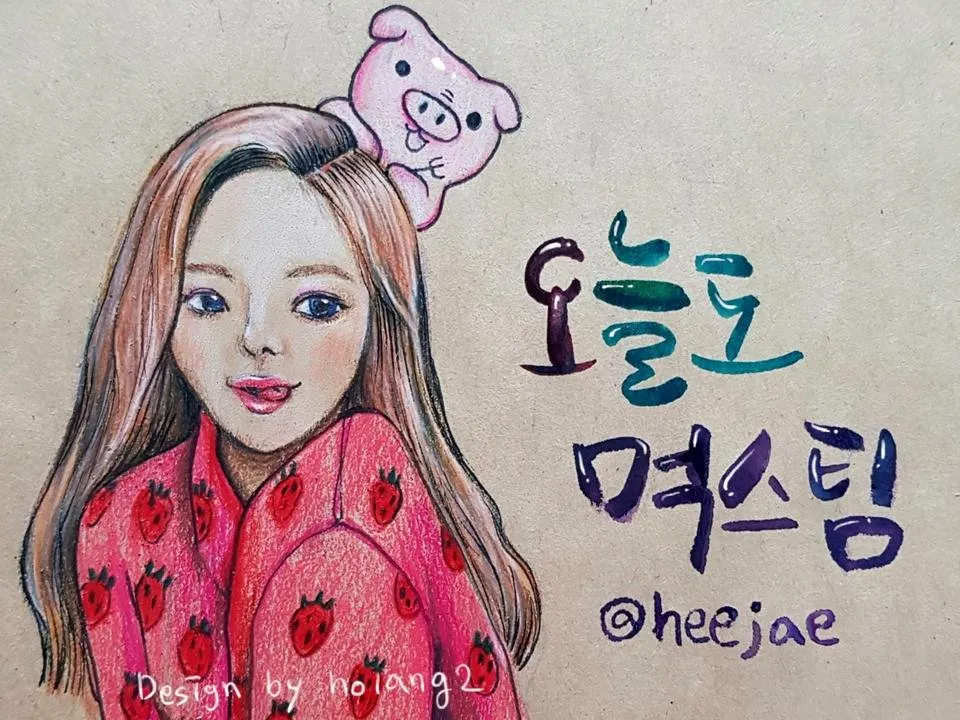 오늘도
먹스팀
@heejae
Design by holang2